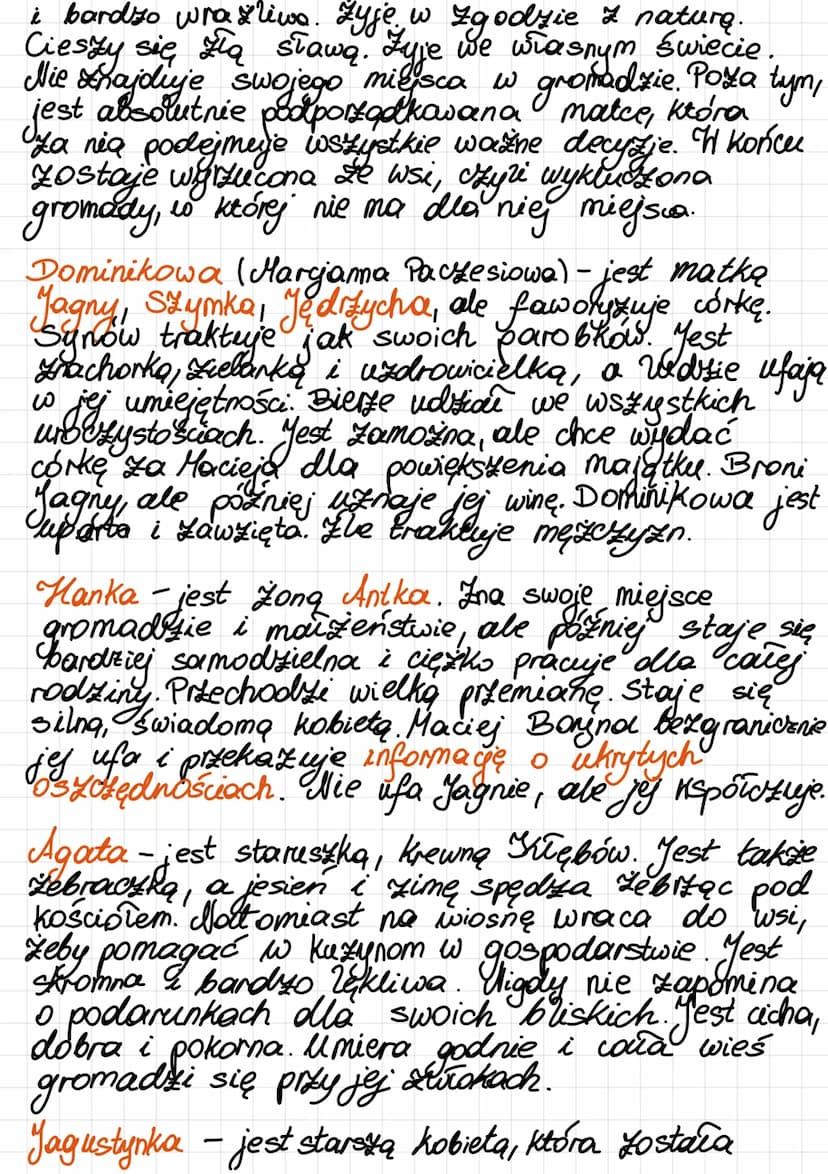 i bardzo wrażliwa. Żyje w zgodzie z naturą.
Cieszy się złą sławą. Żyje we własnym świecie.
Nie znajduje swojego miejsca w gromadzie. Poza tym,
jest absolutnie podporządkowana matce, która
za nią podejmuje wszystkie ważne decyzje. W końcu
zostaje wyrzucona ze wsi, czyli wykluczona
gromady, w której nie ma dla niej miejsca.
Dominikowa (Marcjanna Paczesiowa) - jest matką
Jagny, Szymka, Jędrzycha, ale faworyzuje córkę.
Synów traktuje jak swoich parobków. Jest
znachorką, zielarką i uzdrowicielką, a ludzie ufają
w jej umiejętności. Bierze udział we wszystkich
uroczystościach. Jest zamożna, ale chce wydać
córkę za Macieja dla powiększenia majątku. Broni
Jagny, ale później uznaje jej winę. Dominikowa jest
uparta i zawzięta. Źle traktuje mężczyzn.
Hanka - jest żoną Antka. Zna swoje miejsce
gromadzie i małżeństwie, ale później staje się
bardziej samodzielna i ciężko pracuje dla całej
rodziny. Przechodzi wielką przemianę. Staje się
silną, świadomą kobietą. Maciej Boryna bezgranicznie
jej ufa i przekazuje informację o ukrytych
oszczędnościach. Nie ufa Jagnie, ale jej współczuje.
Agata - jest staruszką, krewną Kłębów. Jest także
żebraczką, a jesień i zimę spędza żebrząc pod
kościołem. Natomiast na wiosnę wraca do wsi,
żeby pomagać w kuzynom w gospodarstwie. Jest
skromna i bardzo lękliwa. Nigdy nie zapomina
o podarunkach dla swoich bliskich. Jest cicha,
dobra i pokorna. Umiera godnie i cała wieś
gromadzi się przy jej zwłokach.
Jagustynka - jest starszą kobietą, która została